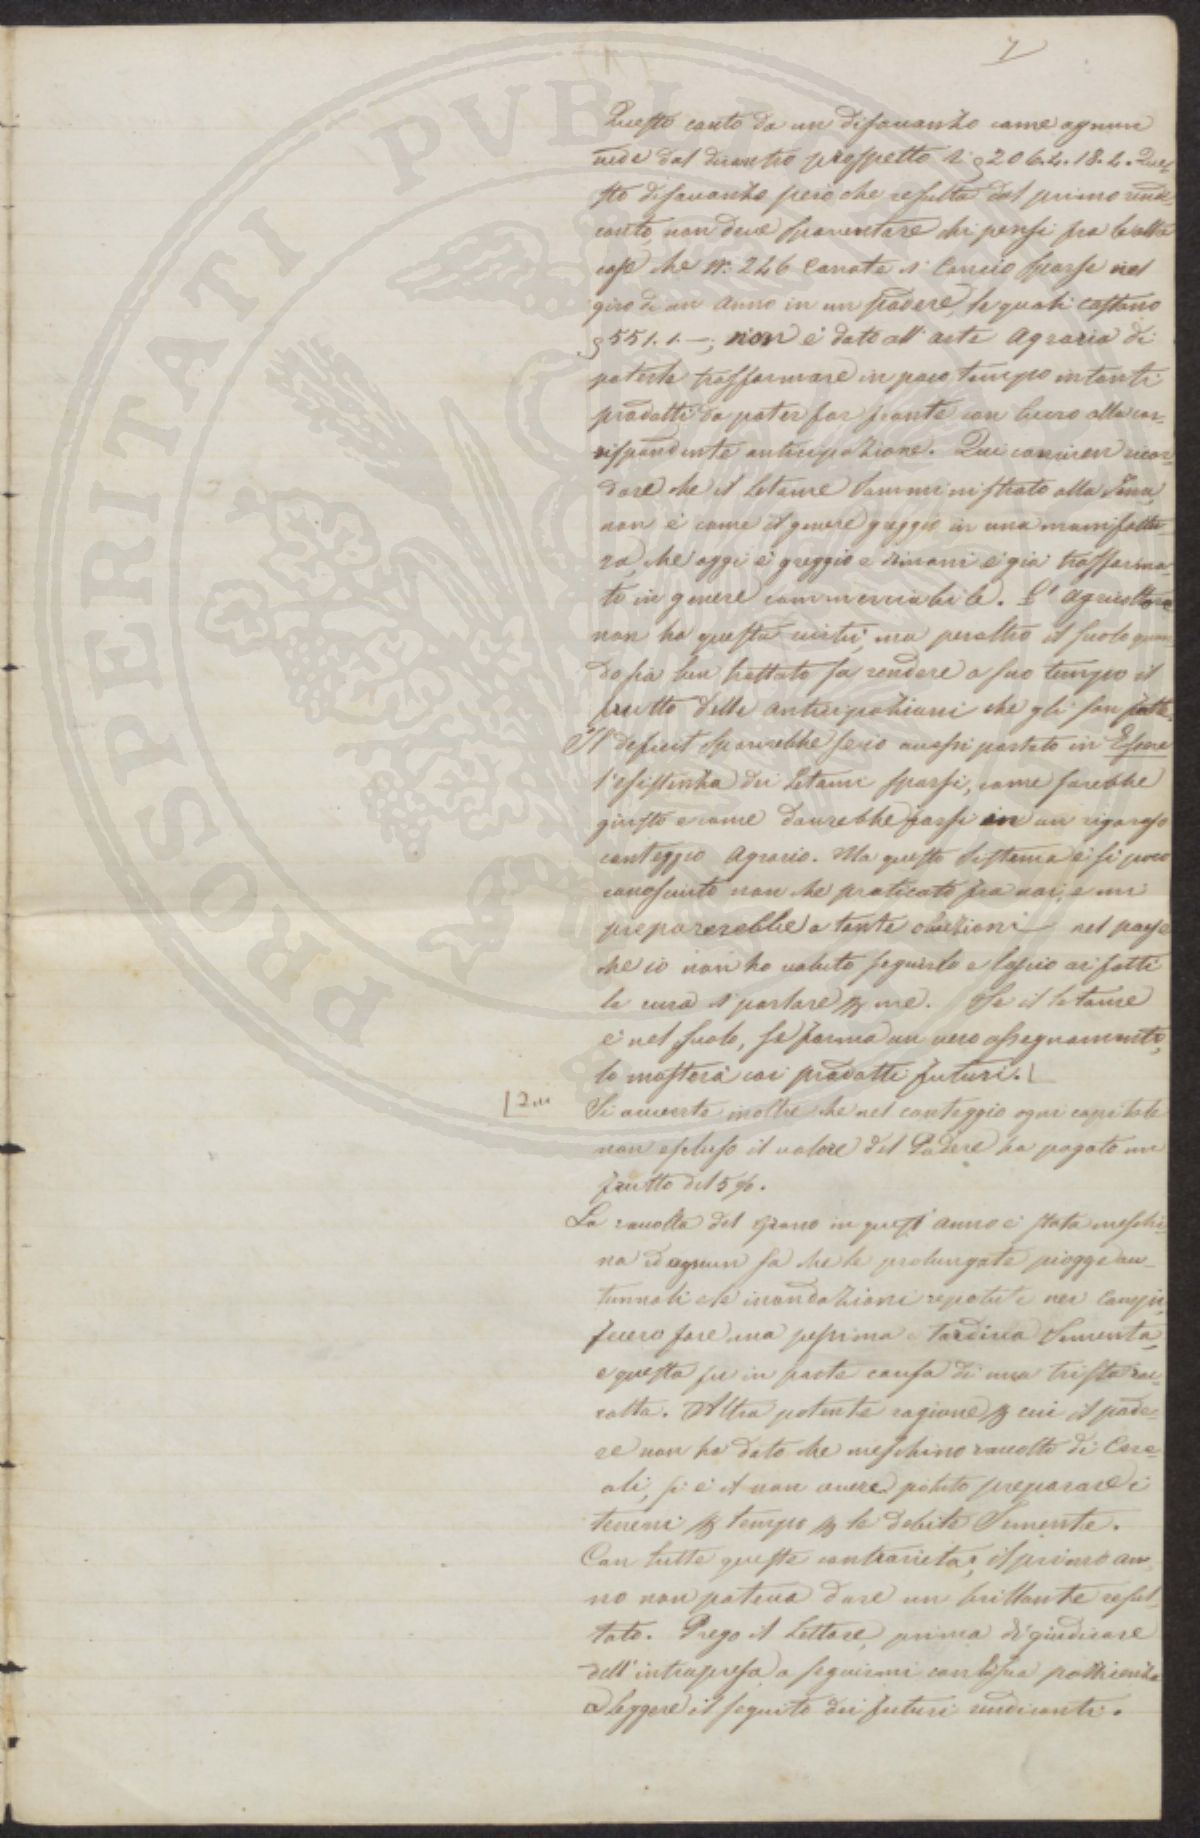 7
Questo conto da un disavanzo come ognun
vede dal dicontro prospetto di 206.4.18.4. Que-
sto disavanzo però che resulta dal primo rendi-
conto, non deve spaventare chi pensi fra le altre
cose che N. 246 Carrate di Concio sparse nel
giro di un anno in un Podere, le quali costano
551.1.—; non è dato all'arte Agraria di
poterle trasformare in poco tempo in tanti
prodotti da poter far fronte con lucro alla cor-
rispondente anticipazione. Qui convien ricor-
dare che il letame somministrato alla Terra,
non è come il genere greggio in una manifattu-
ra, che oggi è greggio e dimani è già trasforma-
to in genere commerciabile. L'Agricoltore
non ha questa virtù, ma peraltro il suolo quan-
do sia ben trattato sa rendere a suo tempo il
frutto delle anticipazioni che gli son fatte.
Il deficit sparirebbe se io avessi portato in Essere
l'esistenza dei letami sparsi, come sarebbe
giusto e come dovrebbe farsi in un rigoroso
conteggio Agrario. Ma questo sistema è sì poco
conosciuto non che praticato fra noi, e mi
preparerebbe a tante obiezioni nel paese
che io non ho voluto seguirlo e lascio ai fatti
la cura di parlare per me. Se il letame
è nel suolo, se forma un vero assegnamento,
lo mostrerà coi prodotti futuri.
Si avverte inoltre che nel conteggio ogni capitale
non escluso il valore del Podere ha pagato un
frutto del 5%.
La raccolta del grano in quest'anno è stata meschi-
na ed ognun sa che le prolungate piogge au-
tunnali e le inondazioni repetute nei Campi,
fecero fare una pessima e tardiva Sementa,
e questa fu in parte causa di una trista rac-
colta. Altra potente ragione per cui il pode-
re non ha dato che meschino raccolto di Cere-
ali, si è il non avere potuto preparare i
terreni per tempo per le debite Semente.
Con tutte queste contrarietà, il primo an-
no non poteva dare un brillante resul-
tato. Prego il Lettore, prima di giudicare
dell'intrapresa a seguirmi con la sua pazienza
a leggere il seguito dei futuri rendiconti.